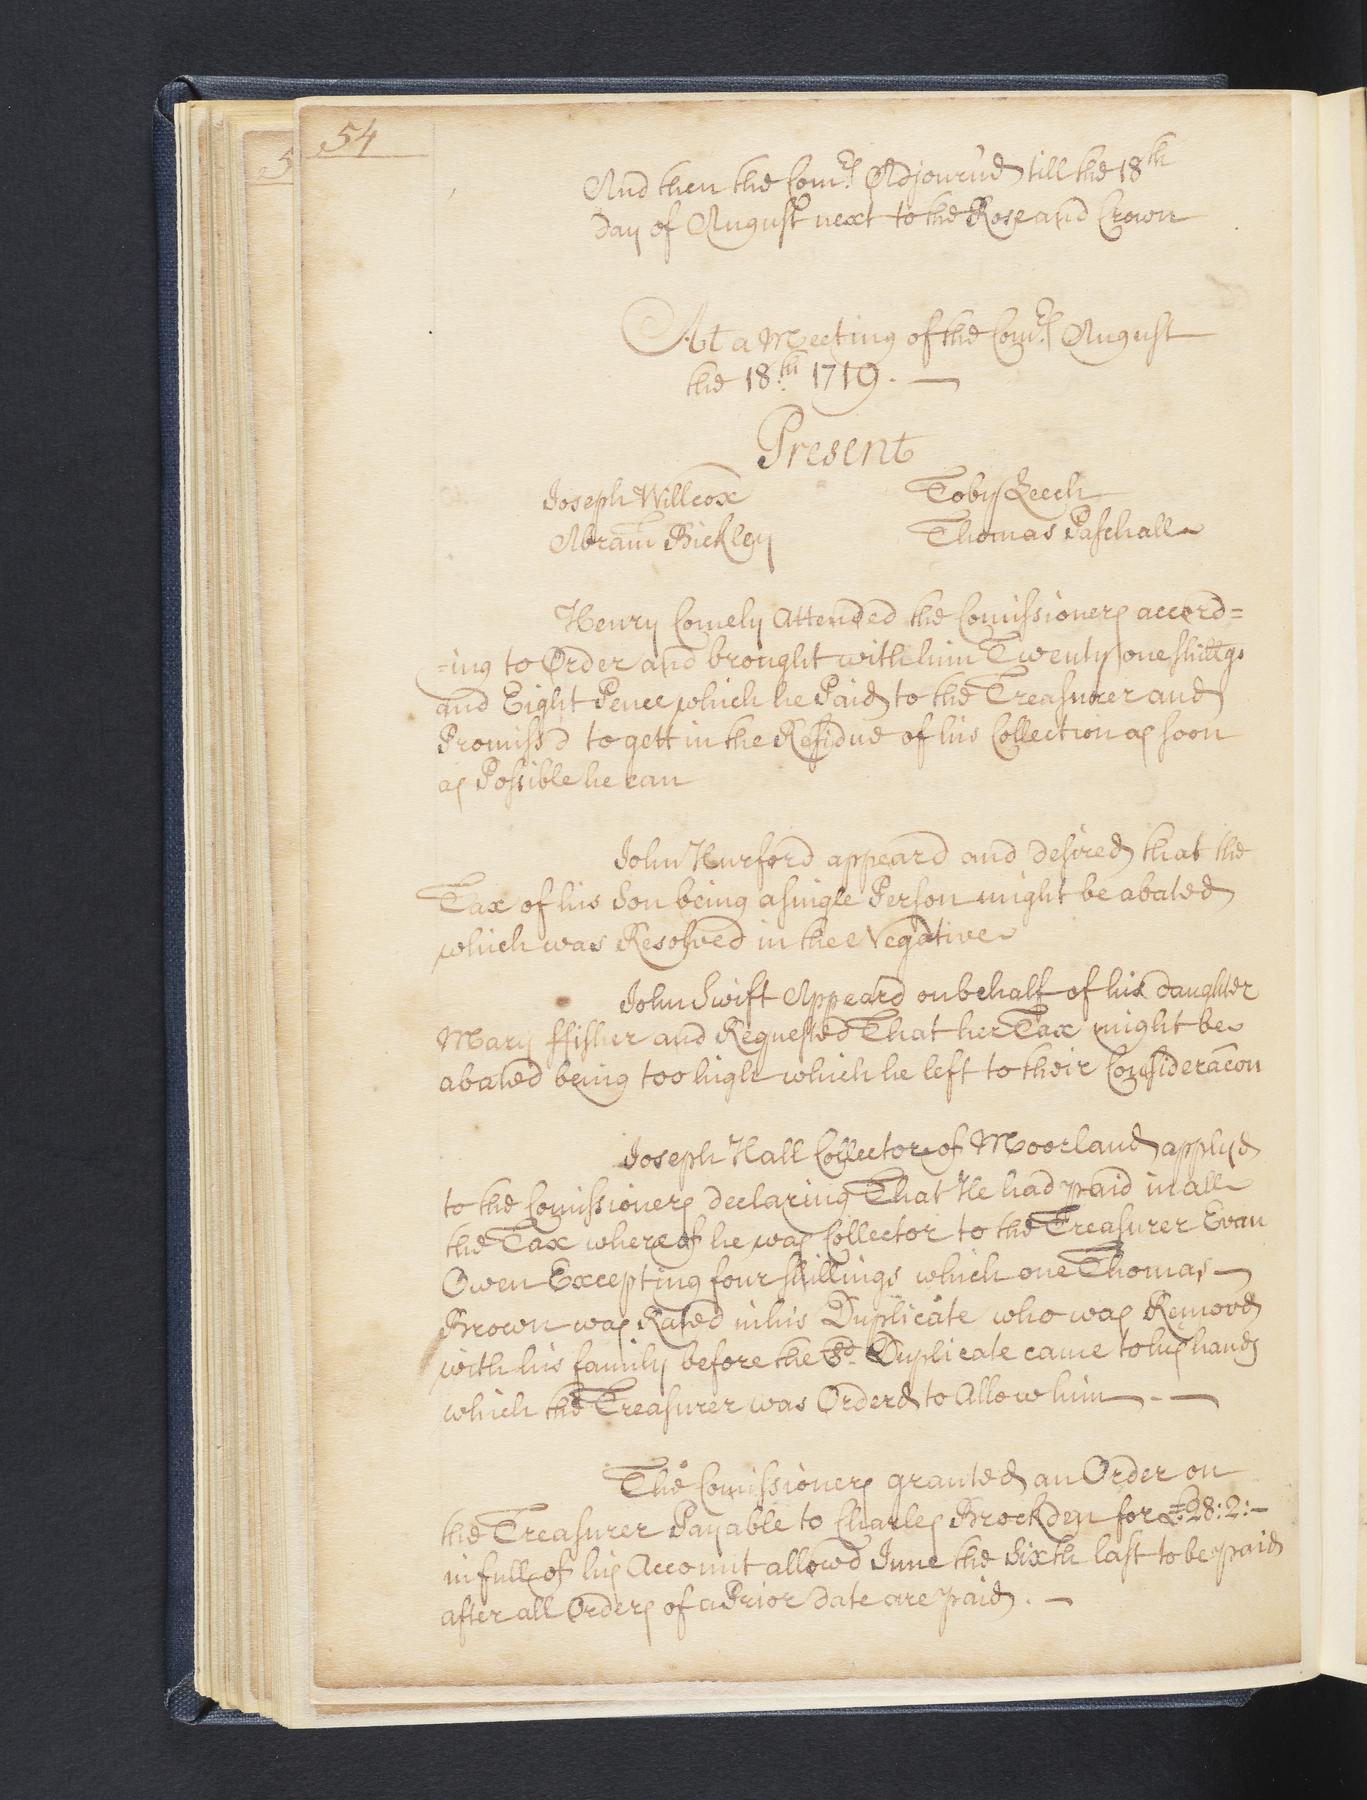 54
And then the Com.rs Adjourn'd till the 18th
Day of August next to the Rose and Crown
At a Meeting of the Com.rs August
the 18.th 1719. —
Present
Joseph Willcox
Toby Leech
Abram Bickley
Thomas Paschall
Henry Comely Attended the Comissioners accord=
=ing to Order and brought with him Twenty one shillgs
and Eight Pence which he Paid to the Treasurer and
Promiss'd to gett in the Residue of his Collection as soon
as Possible he can
John Hurford appeard and desired that the
Tax of his Son being a single Person might be abated
which was Resolved in the Negative
John Swift Appeard on behalf of his daughter
Mary ffisher and Requested That her Tax might be
abated being too high which he left to their Consideracon
Joseph Hall Collector of Moorland applyd
to the Comissioners declaring That He had paid in all
the Tax whereof he was Collector to the Treasurer Evan
Owen Excepting four shillings which one Thomas —
Brown was Rated in his Duplicate who was Removd
with his family before the sd. Duplicate came to his hands
which the Treasurer was Orderd to Allow him —. —
The Comissioners granted an Order on
the Treasurer Payable to Charles Brockden for £28:2:—
in full of his Account allowd June the Sixth last to be paid
after all Orders of a Prior date are paid. —